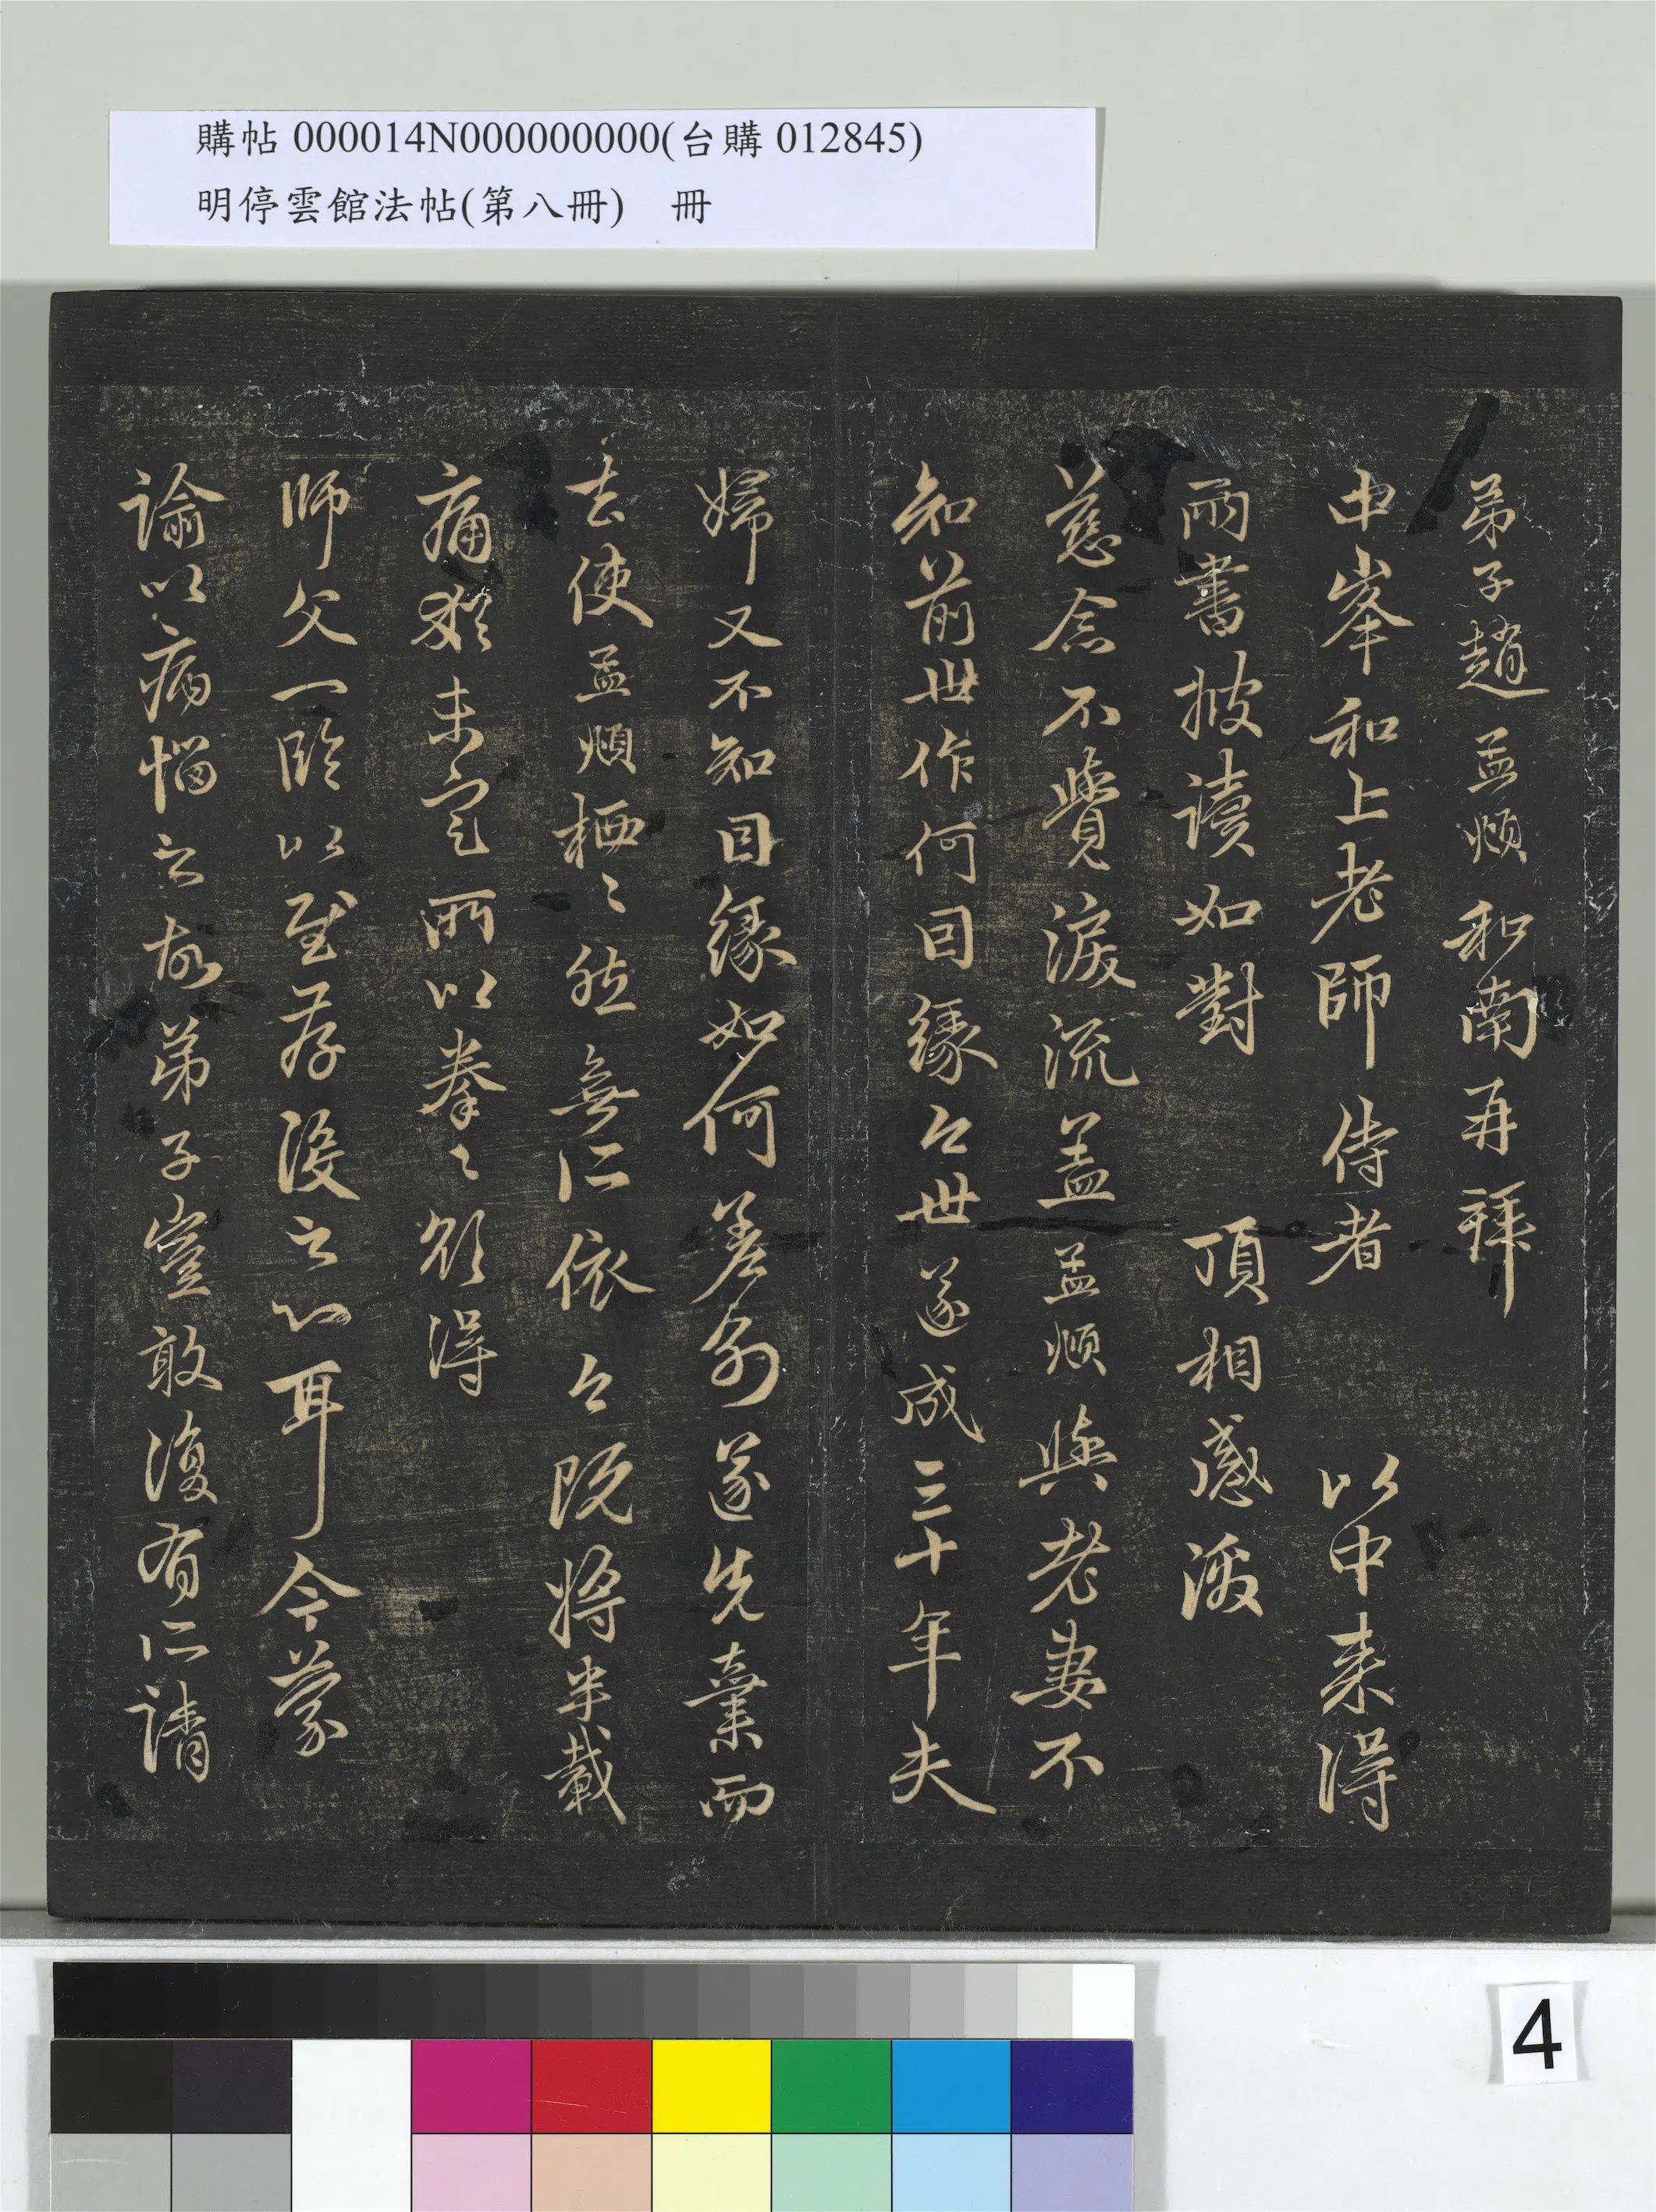 購帖 000014N000000000(台購 012845)
明停雲館法帖(第八冊)　冊
弟子趙孟頫和南再拜
中峯和上老師侍者　以中来得
兩書披讀如對　頂相感激
慈念不覺淚流盖孟頫與老妻不
知前世作何因緣今世遂成三十年夫
婦又不知因緣如何差別遂先棄而
去使孟頫栖〻然無所依今既將半載
痛猶未定所以拳〻欲得
師父一臨以至存没之心耳今蒙
諭以病惱之故弟子豈敢復有所請
4